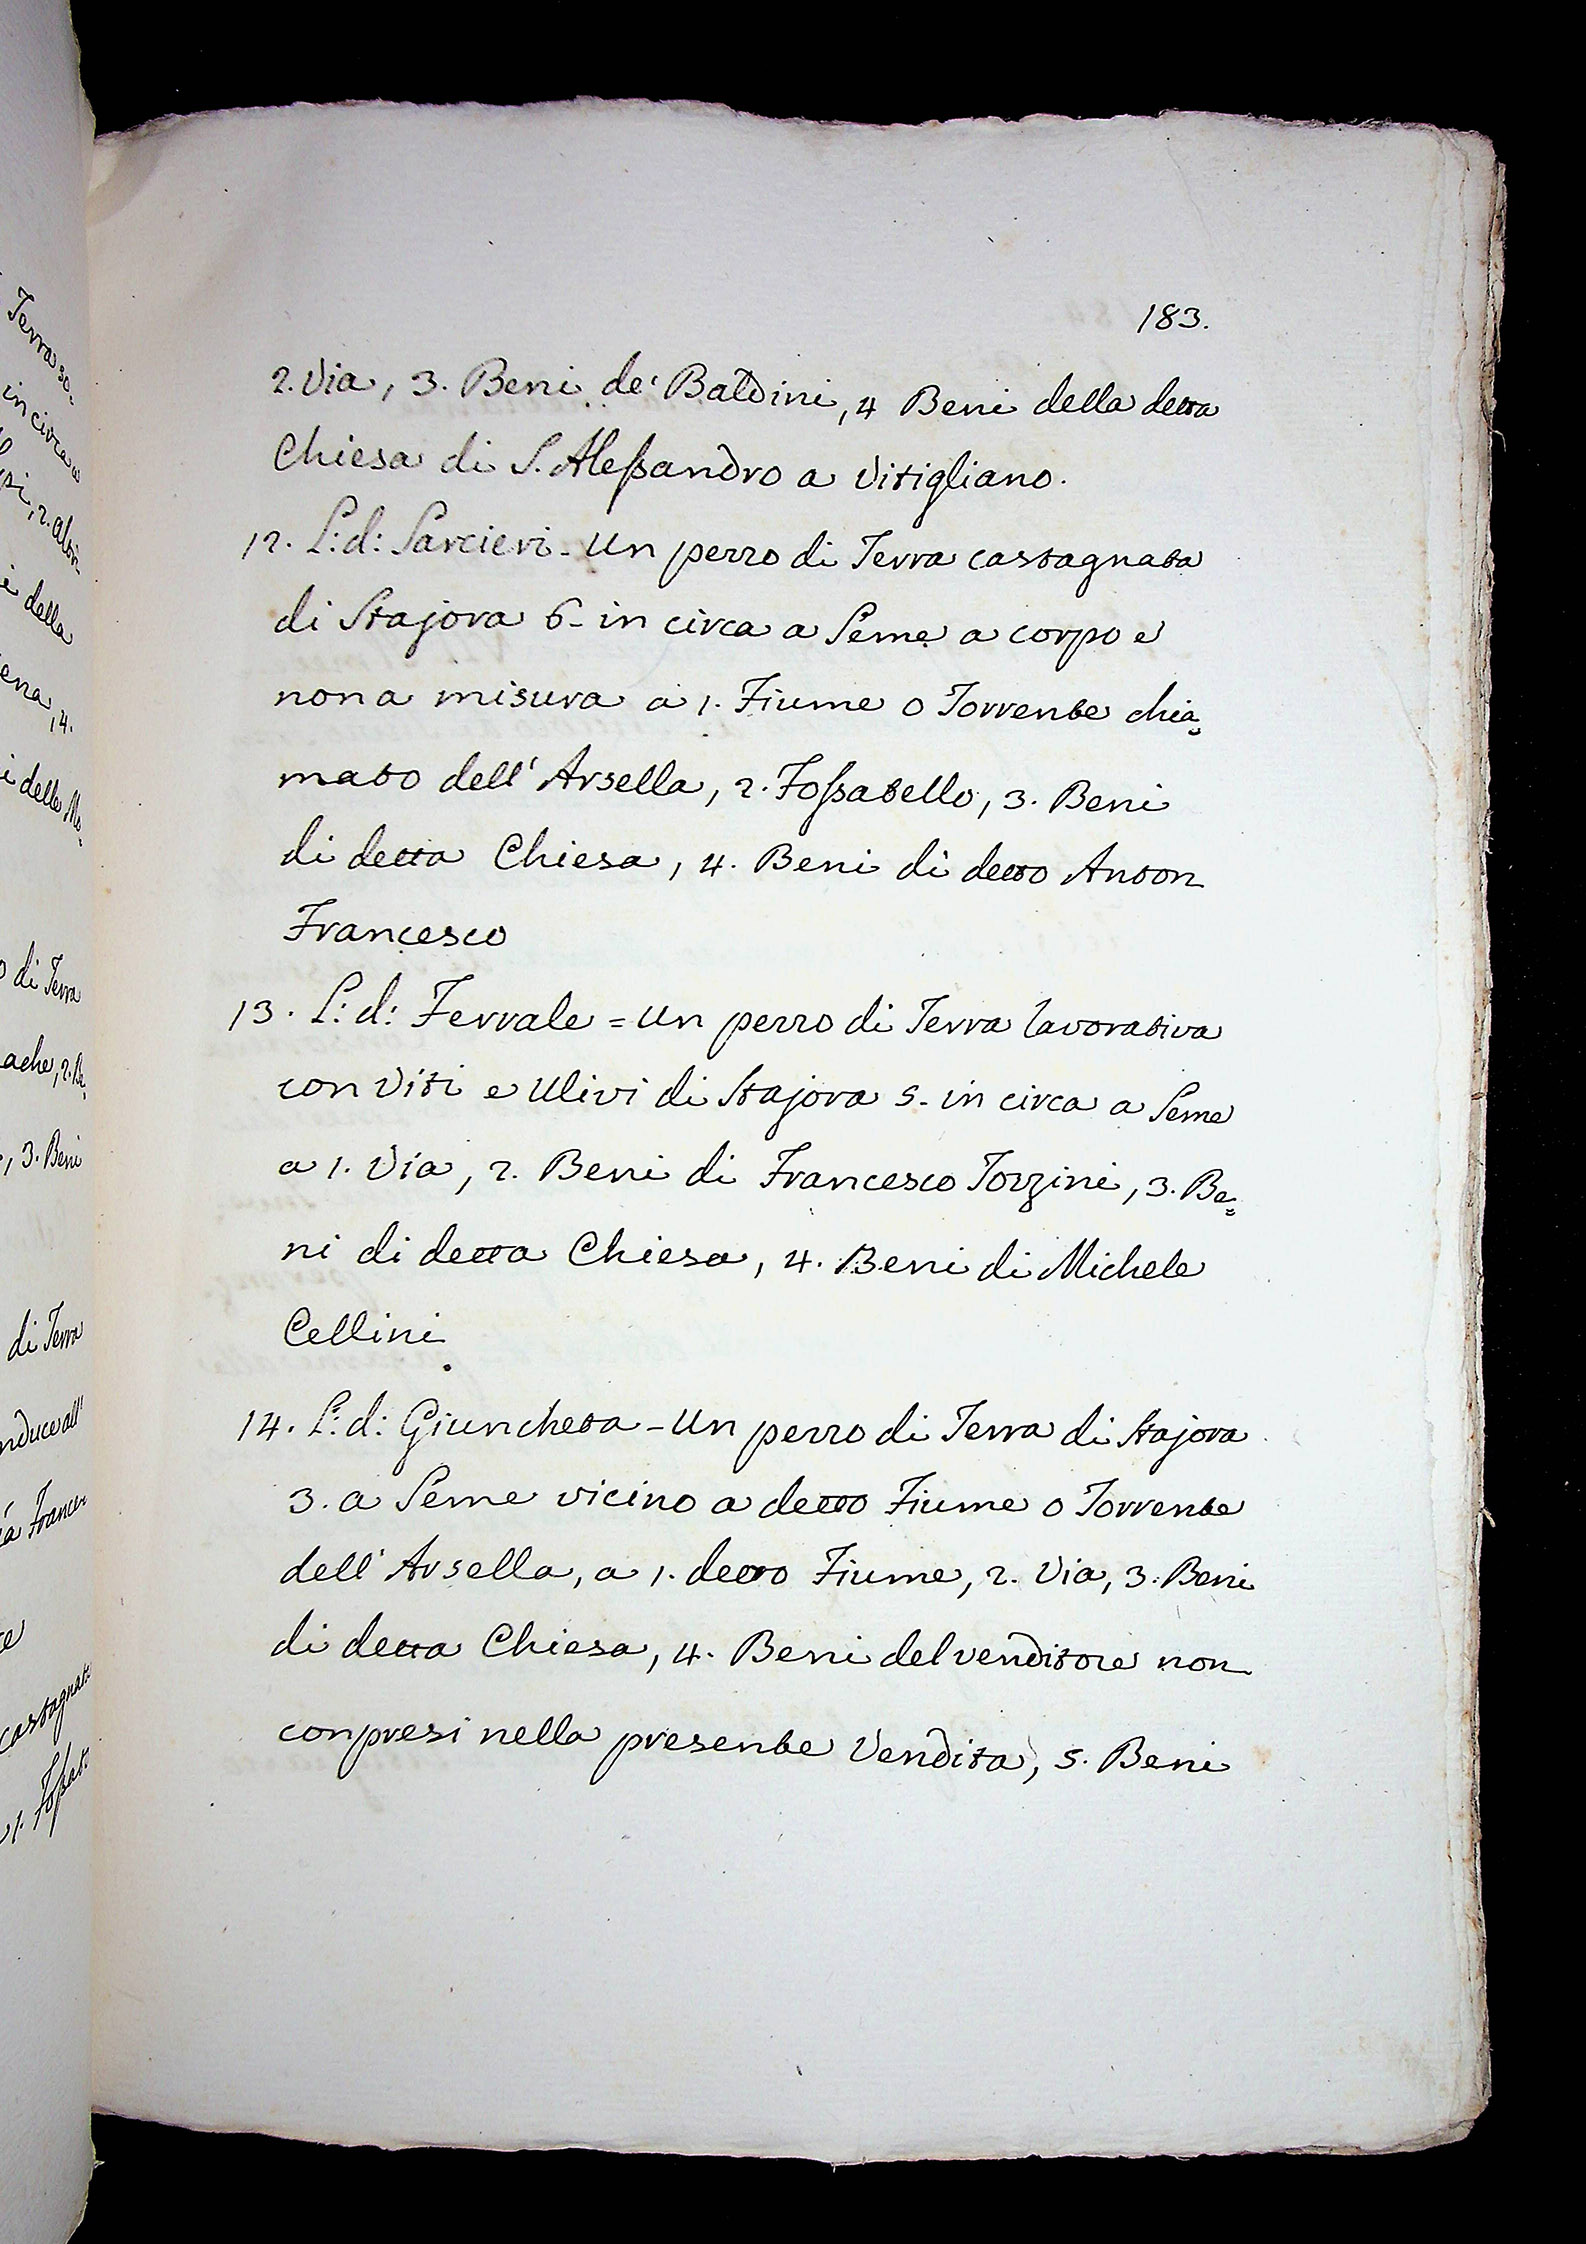 183.
2. Via, 3. Beni de' Baldini, 4 Beni della detta
Chiesa di S. Alessandro a Vitigliano.
12. L: d: Sarcieri - Un pezzo di Terra castagnata
di Stajora 6 - in circa a Seme a corpo e
non a misura a 1. Fiume o Torrente chia=
mato dell' Arsella, 2. Fossatello, 3. Beni
di detta Chiesa, 4. Beni di detto Anton
Francesco
13. L: d: Ferrale = Un pezzo di Terra lavorativa
con Viti e Ulivi di Stajora 5 - in circa a Seme
a 1. Via, 2. Beni di Francesco Torzini, 3. Be=
ni di detta Chiesa, 4. Beni di Michele
Cellini
14. L: d: Giuncheta - Un pezzo di Terra di Stajora
3. a Seme vicino a detto Fiume o Torrente
dell' Arsella, a 1. detto Fiume, 2. Via, 3. Beni
di detta Chiesa, 4. Beni del venditore non
conpresi nella presente Vendita, 5. Beni
Terra so-
in circa a
della
4.
i delle Mo=
di Terra
3. Beni
di Terra
castagnat